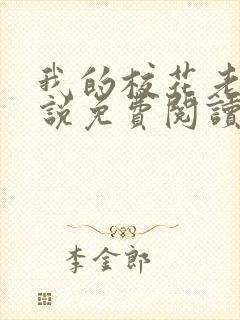 我的校花老
說免費閱讀
李金郎